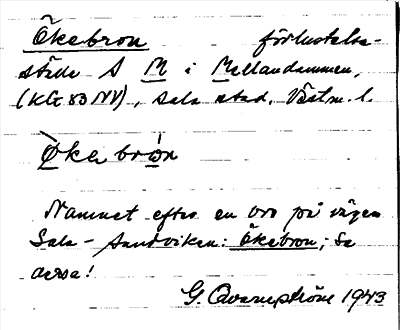 Ökebron förlustelse-
ställe S M i Mellandammen,
(KG 83 NV), Sala stad, Västm. l.
Ö̀ke brón
Namnet efter en bro på vägen
Sala - Sandviken: Ökebron; Se
dersa!
G. Qvarnström 1943